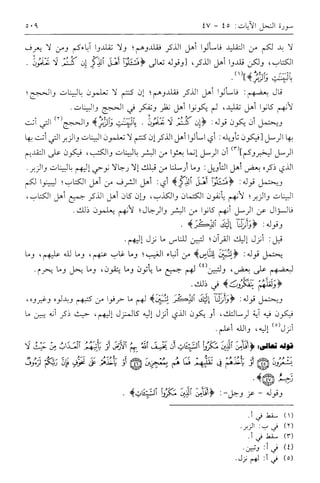 سورة النحل الآيات: ٤٥ - ٤٧
٥٠٩
لا بد لكم من التقليد فاسألوا أهل الذكر فقلدوهم؛ ولا تقلدوا آباءكم ومن لا يعرف
الكتاب، ولكن قلدوا أهل الذكر، [وقوله تعالى ﴿فَسْئَلُوٓا۟ أَهْلَ ٱلذِّكْرِ إِن كُنتُمْ لَا تَعْلَمُونَ .
بِٱلْبَيِّنَٰتِ وَٱلزُّبُرِ﴾](١).
قال بعضهم: فاسألوا أهل الذكر فقلدوهم؛ إن كنتم لا تعلمون بالبينات والحجج؛
لأنهم كانوا أهل تقليد، لم يكونوا أهل نظر وتفكر في الحجج والبينات.
ويحتمل أن يكون قوله: ﴿إِن كُنتُمْ لَا تَعْلَمُونَ . بِٱلْبَيِّنَٰتِ وَٱلزُّبُرِ﴾ والحجج(٢) التي أتت
بها الرسل [فيكون تأويله: أي اسألوا أهل الذكر إن كنتم لا تعلمون البينات والزبر التي أتت بها
الرسل ليخبروكم](٣) أن الرسل إنما بعثوا من البشر بالبينات والكتب، فيكون على التقديم
الذي ذكره بعض أهل التأويل: وما أرسلنا من قبلك إلا رجالا نوحي إليهم بالبينات والزبر.
ويحتمل قوله: ﴿فَسْئَلُوٓا۟ أَهْلَ ٱلذِّكْرِ﴾ أي: أهل الشرف من أهل الكتاب؛ ليبينوا لكم
البينات والزبر؛ لأنهم يأنفون الكتمان والكذب، وإن كان أهل الذكر جميع أهل الكتاب،
فالسؤال عن الرسل أنهم كانوا من البشر والرجال؛ لأنهم يعلمون ذلك.
وقوله: ﴿وَأَنزَلْنَآ إِلَيْكَ ٱلذِّكْرَ﴾ .
قيل: أنزل إليك القرآن؛ لتبين للناس ما نزل إليهم.
يحتمل قوله: ﴿لِتُبَيِّنَ لِلنَّاسِ﴾ من أنباء الغيب؛ وما غاب عنهم، وما لله عليهم، وما
لبعضهم على بعض، ولتبين(٤) لهم جميع ما يأتون وما يتقون، وما يحل وما يحرم.
﴿وَلَعَلَّهُمْ يَتَفَكَّرُونَ﴾ في ذلك.
ويحتمل قوله: ﴿وَأَنزَلْنَآ إِلَيْكَ ٱلذِّكْرَ لِتُبَيِّنَ﴾ لهم ما حرفوا من كتبهم وبدلوه وغيروه،
فيكون فيه آية لرسالتك، أو يكون الذي أنزل إليه كالمنزل إليهم، حيث ذكر أنه يبين ما
أنزل(٥) إليه، والله أعلم.
قوله تعالى: ﴿أَفَأَمِنَ ٱلَّذِينَ مَكَرُوا۟ ٱلسَّيِّـَٔاتِ أَن يَخْسِفَ ٱللَّهُ بِهِمُ ٱلْأَرْضَ أَوْ يَأْتِيَهُمُ ٱلْعَذَابُ مِنْ حَيْثُ لَا
يَشْعُرُونَ ﴿٤٥﴾ أَوْ يَأْخُذَهُمْ فِى تَقَلُّبِهِمْ فَمَا هُم بِمُعْجِزِينَ ﴿٤٦﴾ أَوْ يَأْخُذَهُمْ عَلَىٰ تَخَوُّفٍ فَإِنَّ رَبَّكُمْ لَرَءُوفٌ
رَّحِيمٌ ﴿٤٧﴾﴾.
وقوله - عز وجل -: ﴿أَفَأَمِنَ ٱلَّذِينَ مَكَرُوا۟ ٱلسَّيِّـَٔاتِ﴾ .
(١) سقط في أ.
(٢) في ب: الزبر.
(٣) سقط في أ.
(٤) في أ: وتبين.
(٥) في أ: لهم نزل.